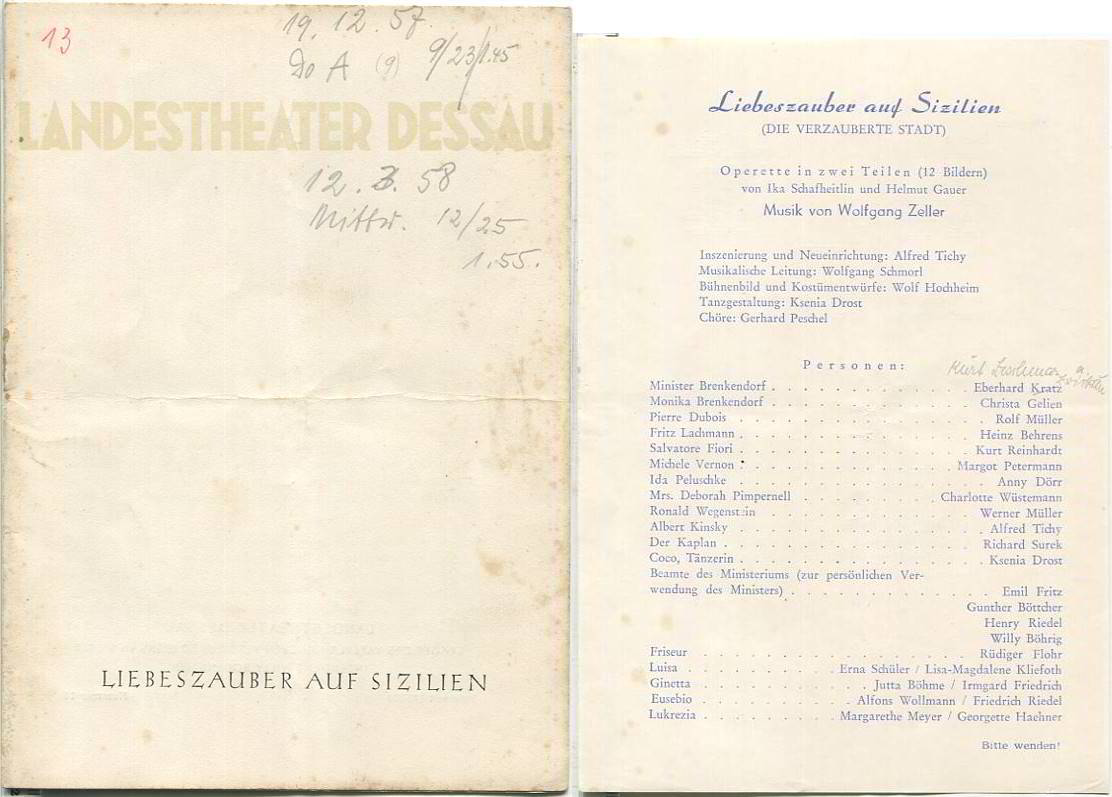 13
19. 12. 57.
Do A (9) 9/23/1.45
LANDESTHEATER DESSAU
12. 3. 58
Mittw. 12/25
1.55.
LIEBESZAUBER AUF SIZILIEN
Liebeszauber auf Sizilien
(DIE VERZAUBERTE STADT)
Operette in zwei Teilen (12 Bildern)
von Ika Schafheitlin und Helmut Gauer
Musik von Wolfgang Zeller
Inszenierung und Neueinrichtung: Alfred Tichy
Musikalische Leitung: Wolfgang Schmorl
Bühnenbild und Kostümentwürfe: Wolf Hochheim
Tanzgestaltung: Ksenia Drost
Chöre: Gerhard Peschel
Personen:
Kurt
Minister Brenkendorf . . . . . . . . . . . . . Eberhard Kratz
Monika Brenkendorf . . . . . . . . . . . . . Christa Gelien
Pierre Dubois . . . . . . . . . . . . . . . Rolf Müller
Fritz Lachmann . . . . . . . . . . . . . . Heinz Behrens
Salvatore Fiori . . . . . . . . . . . . . . Kurt Reinhardt
Michele Vernon . . . . . . . . . . . . . Margot Petermann
Ida Peluschke . . . . . . . . . . . . . . . Anny Dörr
Mrs. Deborah Pimpernell . . . . . . . . . Charlotte Wüstemann
Ronald Wegenstein . . . . . . . . . . . . . Werner Müller
Albert Kinsky . . . . . . . . . . . . . . . Alfred Tichy
Der Kaplan . . . . . . . . . . . . . . . Richard Surek
Coco, Tänzerin . . . . . . . . . . . . . . Ksenia Drost
Beamte des Ministeriums (zur persönlichen Ver-
wendung des Ministers) . . . . . . . . . . . . Emil Fritz
Gunther Böttcher
Henry Riedel
Willy Böhrig
Friseur . . . . . . . . . . . . . . . . Rüdiger Flohr
Luisa . . . . . . . . . . Erna Schüler / Lisa-Magdalene Kliefoth
Ginetta . . . . . . . . . . . Jutta Böhme / Irmgard Friedrich
Eusebio . . . . . . . . . . Alfons Wollmann / Friedrich Riedel
Lukrezia . . . . . . . . . Margarethe Meyer / Georgette Haehner
Bitte wenden!